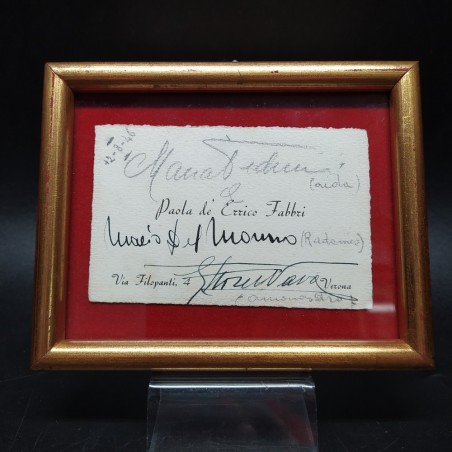 12-8-46
Maria Pedrini
(aida)
Paola de' Errico Fabbri
Mario Del Monaco (Radamès)
Via Filopanti. 4 Verona
(Amonasro)